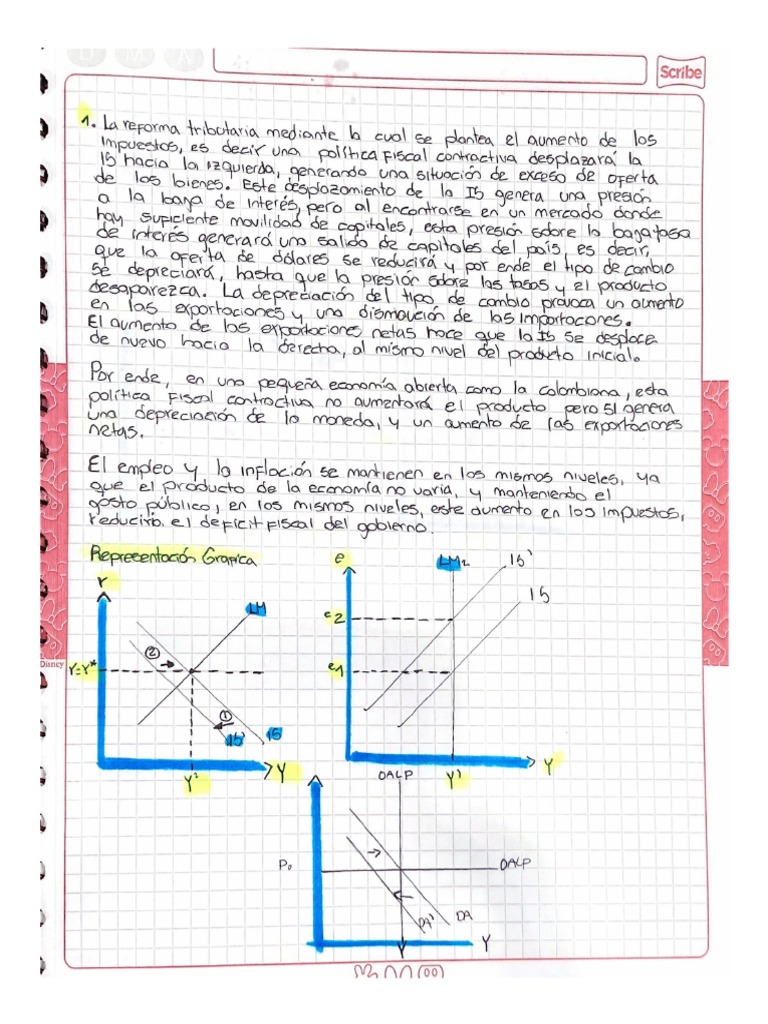 Scribe
1. La reforma tributaria mediante la cual se plantea el aumento de los
Impuestos, es decir una política Fiscal contractiva desplazará la
IS hacia la izquierda, generando una situación de exceso de oferta
de los bienes. Este desplazamiento de la IS genera una presión
a la baja de interés, pero al encontrarse en un mercado donde
hay suficiente movilidad de capitales, esta presión sobre la baja tasa
de interés generará una salida de capitales del país, es decir,
que la oferta de dólares se reducirá y por ende el tipo de cambio
se depreciará, hasta que la presión sobre las tasas y el producto
desaparezca. La depreciación del tipo de cambio provoca un aumento
en las exportaciones y una dismución de las Importacones.
El aumento de las exportaciones netas hace que la IS se desplace
de nuevo hacia la derecha, al mismo nivel del producto inicial.
Por ende, en una pequeña economía abierta como la colombiana, esta
política Fiscal contractiva no aumentará el producto pero SI genera
una depreciación de la moneda, y un aumento de las exportaciones
netas.
El empleo y la inflación se mantienen en los mismos niveles, ya
que el producto de la economía no varía, y manteniendo el
gasto público, en los mismos niveles, este aumento en los impuestos,
reducirá el deficit fiscal del gobierno.
Representación Grafica
r
LM
②
r=r*
①
IS'
IS
Y¹
Y
e
LM2
IS'
IS
e2
e1
Y¹
Y
Disney
OALP
P₀
OACP
DA'
DA
Y
Y